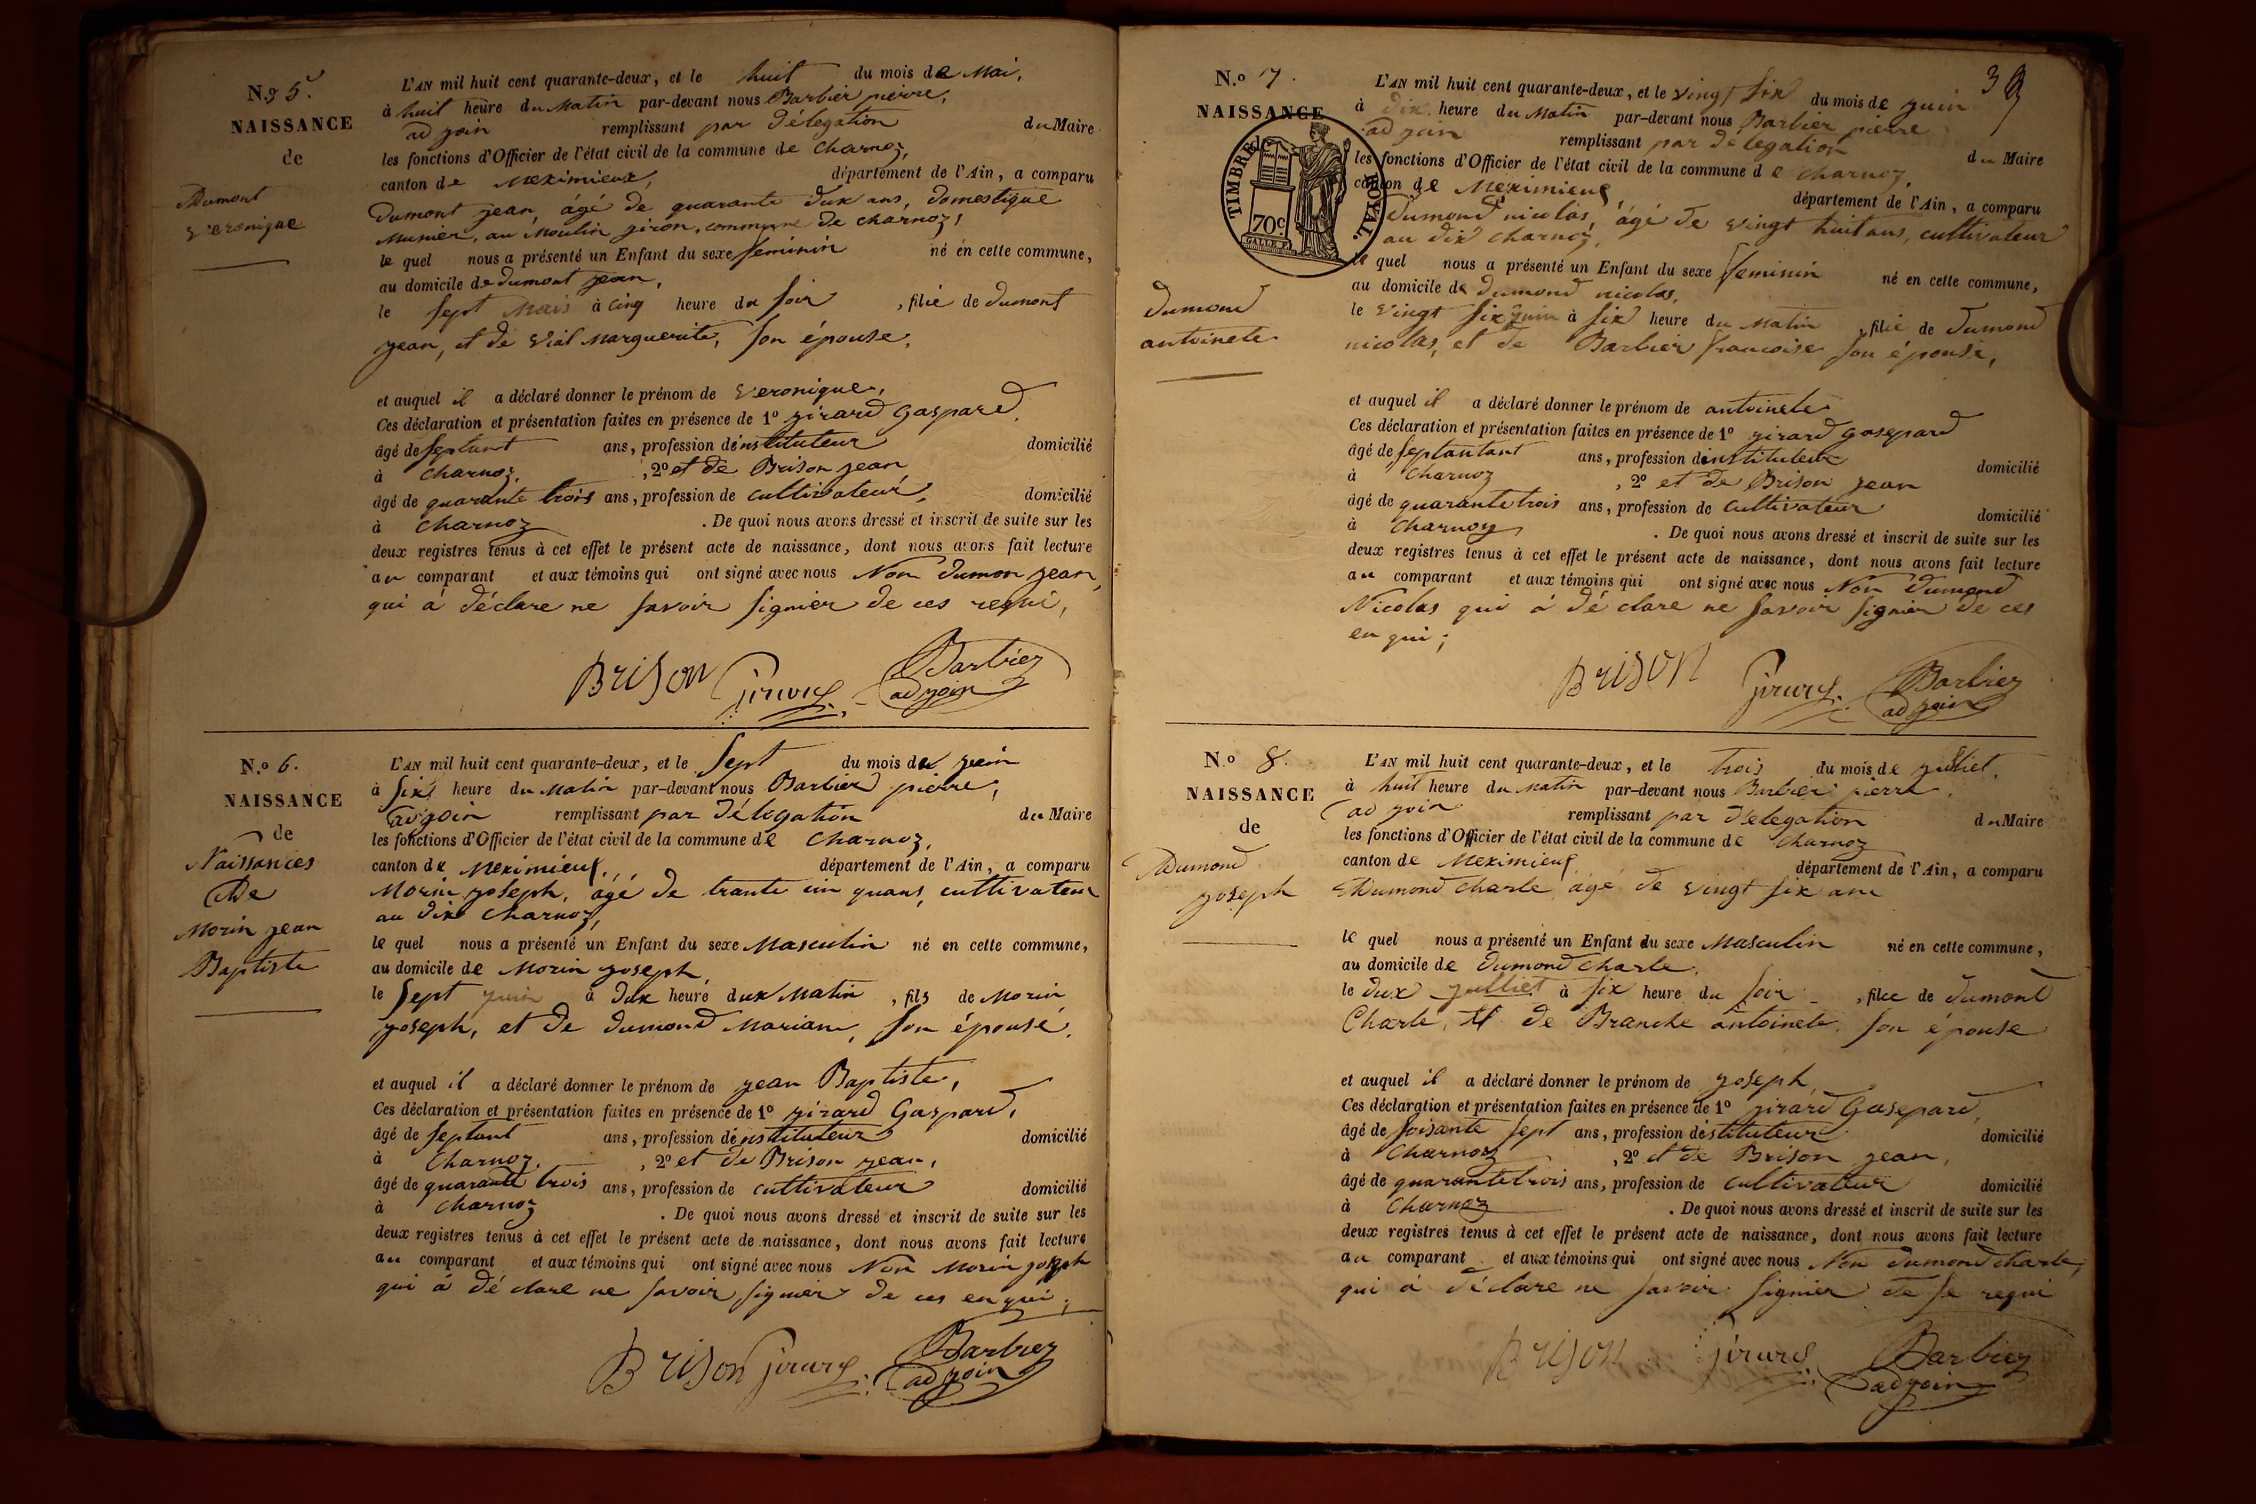 N.º 5.
NAISSANCE
de
Dumont
veronique
L'AN mil huit cent quarante-deux, et le huit du mois de Mai,
à huit heure du Matin par-devant nous Barbier pierre,
adjoin remplissant par délegation du Maire
les fonctions d'Officier de l'état civil de la commune de Charnoz,
canton de Meximieux, département de l'Ain, a comparu
Dumont jean, âgé de quarante dux ans, domestique
Munier, au Moulin giron, commune de charnoz,
le quel nous a présenté un Enfant du sexe feminin né en cette commune,
au domicile de dumont jean,
le sept Mais à cinq heure du soir, filie de dumont
jean, et de vial Marguerite, son épouse,
et auquel il a déclaré donner le prénom de veronique,
Ces déclaration et présentation faites en présence de 1º girard Gaspard,
âgé de septant ans, profession dénstituteur domicilié
à Charnoz, , 2º et de Brison jean
âgé de quarante trois ans, profession de cultivateur, domicilié
à Charnoz . De quoi nous avons dressé et inscrit de suite sur les
deux registres tenus à cet effet le présent acte de naissance, dont nous avons fait lecture
au comparant et aux témoins qui ont signé avec nous Non dumon jean,
qui á déclare ne savoir signier de ces requi,
Brison girard Barbier
adjoin
N.º 6.
NAISSANCE
de
Naissances
De
Morin jean
Baptiste
L'AN mil huit cent quarante-deux, et le sept du mois de juin
à six heure du Matin par-devant nous Barbier pierre,
adjoin remplissant par délegation du Maire
les fonctions d'Officier de l'état civil de la commune de Charnoz,
canton de Meximieux, département de l'Ain, a comparu
Morin joseph, âgé de trante cin quans, cultivateur
au dix Charnoz,
le quel nous a présenté un Enfant du sexe Masculin né en cette commune,
au domicile de Morin joseph
le sept juin à dux heure dux Matin, fils de Morin
joseph, et de dumond Mariane, son épousé.
et auquel il a déclaré donner le prénom de jean Baptiste,
Ces déclaration et présentation faites en présence de 1º girard Gaspard,
âgé de septant ans, profession dénstituteur domicilié
à Charnoz, , 2º et de Brison jean,
âgé de quarante trois ans, profession de cultivateur domicilié
à Charnoz . De quoi nous avons dressé et inscrit de suite sur les
deux registres tenus à cet effet le présent acte de naissance, dont nous avons fait lecture
au comparant et aux témoins qui ont signé avec nous Non Morin joseph
qui á déclare ne savoir signier de ces enqui,
Brison girard Barbier
adjoin
39
N.º 7.
NAISSANCE
TIMBRE ROYAL.
70c
dumond
antoinete
L'AN mil huit cent quarante-deux, et le vingt six du mois de juin
à dix heure du Matin par-devant nous Barbier pierre
adjoin remplissant par délegation du Maire
les fonctions d'Officier de l'état civil de la commune de Charnoz,
canton de Meximieux département de l'Ain, a comparu
dumond nicolas, âgé de vingt huit ans, cultivateur
au dix charnoz,
le quel nous a présenté un Enfant du sexe feminin né en cette commune,
au domicile de dumond nicolas,
le vingt six juin à six heure du Matin, filie de dumond
nicolas, et de Barbier francoise son épouse,
et auquel il a déclaré donner le prénom de antoinete
Ces déclaration et présentation faites en présence de 1º girard gasepard
âgé de septantant ans, profession dinstituteur domicilié
à Charnoz , 2º et de Brison jean
âgé de quarante trois ans, profession de cultivateur domicilié
à Charnoz . De quoi nous avons dressé et inscrit de suite sur les
deux registres tenus à cet effet le présent acte de naissance, dont nous avons fait lecture
au comparant et aux témoins qui ont signé avec nous Non dumond
Nicolas qui á déclare ne savoir signier de ces
enqui,
Brison girard Barbier
adjoin
N.º 8.
NAISSANCE
de
Dumond
joseph
L'AN mil huit cent quarante-deux, et le trois du mois de julliet,
à huit heure du Matin par-devant nous Barbier pierre,
adjoin remplissant par délegation du Maire
les fonctions d'Officier de l'état civil de la commune de Charnoz
canton de Meximieux département de l'Ain, a comparu
Dumond charle âgé de vingt six ans
le quel nous a présenté un Enfant du sexe Masculin né en cette commune,
au domicile de dumond charle,
le dux julliet à six heure du soir, filie de dumond
Charle, et de Branche antoinete, son épouse
et auquel il a déclaré donner le prénom de joseph,
Ces déclaration et présentation faites en présence de 1º girard Gasepard,
âgé de soisante sept ans, profession déstituteur domicilié
à Charnoz , 2º et de Brison jean,
âgé de quarante trois ans, profession de cultivateur domicilié
à Charnoz . De quoi nous avons dressé et inscrit de suite sur les
deux registres tenus à cet effet le présent acte de naissance, dont nous avons fait lecture
au comparant et aux témoins qui ont signé avec nous Non dumond charle,
qui á déclare ne savoir signier de se requi
Brison girard Barbier
adjoin